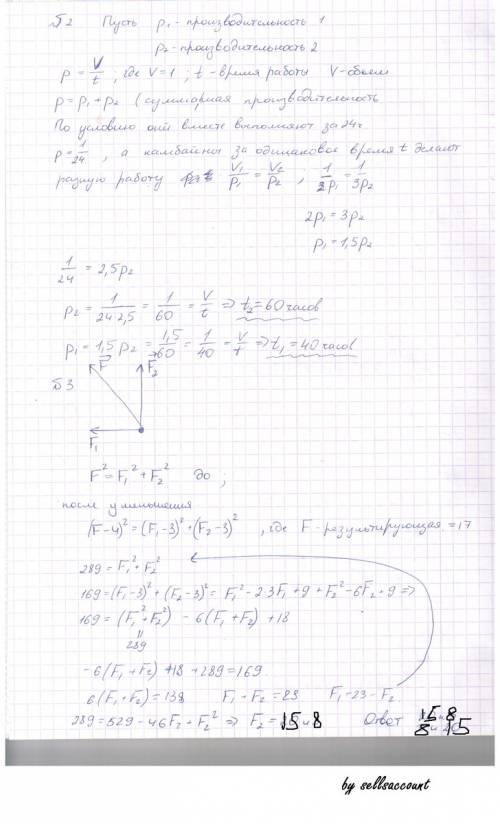 Б2 Пусть p₁ - производительность 1
p₂ - производительность 2
p = V/t ; где V=1 ; t - время работы V - объем
p = p₁ + p₂ (суммарная производительность
По условию они вместе выполняют за 24ч
p = 1/24 , а комбайны за одинаковое время t делают
разную работу V₁/p₁ = V₂/p₂ ; 1/2p₁ = 1/3p₂
2p₁ = 3p₂
p₁ = 1,5p₂
1/24 = 2,5p₂
p₂ = 1/24·2,5 = 1/60 = V/t => t₂ = 60 часов
p₁ = 1,5 p₂ = 1,5/60 = 1/40 = V/t => t₁ = 40 часов
Б3 F F₂
F₁
F² = F₁² + F₂² до ;
после уменьшения
(F-4)² = (F₁-3)² + (F₂-3)² , где F - результирующая = 17
289 = F₁² + F₂²
169 = (F₁-3)² + (F₂-3)² = F₁² - 2·3F₁ + 9 + F₂² - 6F₂ + 9 =>
169 = (F₁² + F₂²) - 6(F₁ + F₂) + 18
289
-6(F₁ + F₂) + 18 + 289 = 169
6(F₁ + F₂) = 138 F₁ + F₂ = 23 F₁ - 23 - F₂
289 = 529 - 46F₂ + F₂² => F₂ = 15 и 8 Ответ 15 8
8 15
by sellsaccount